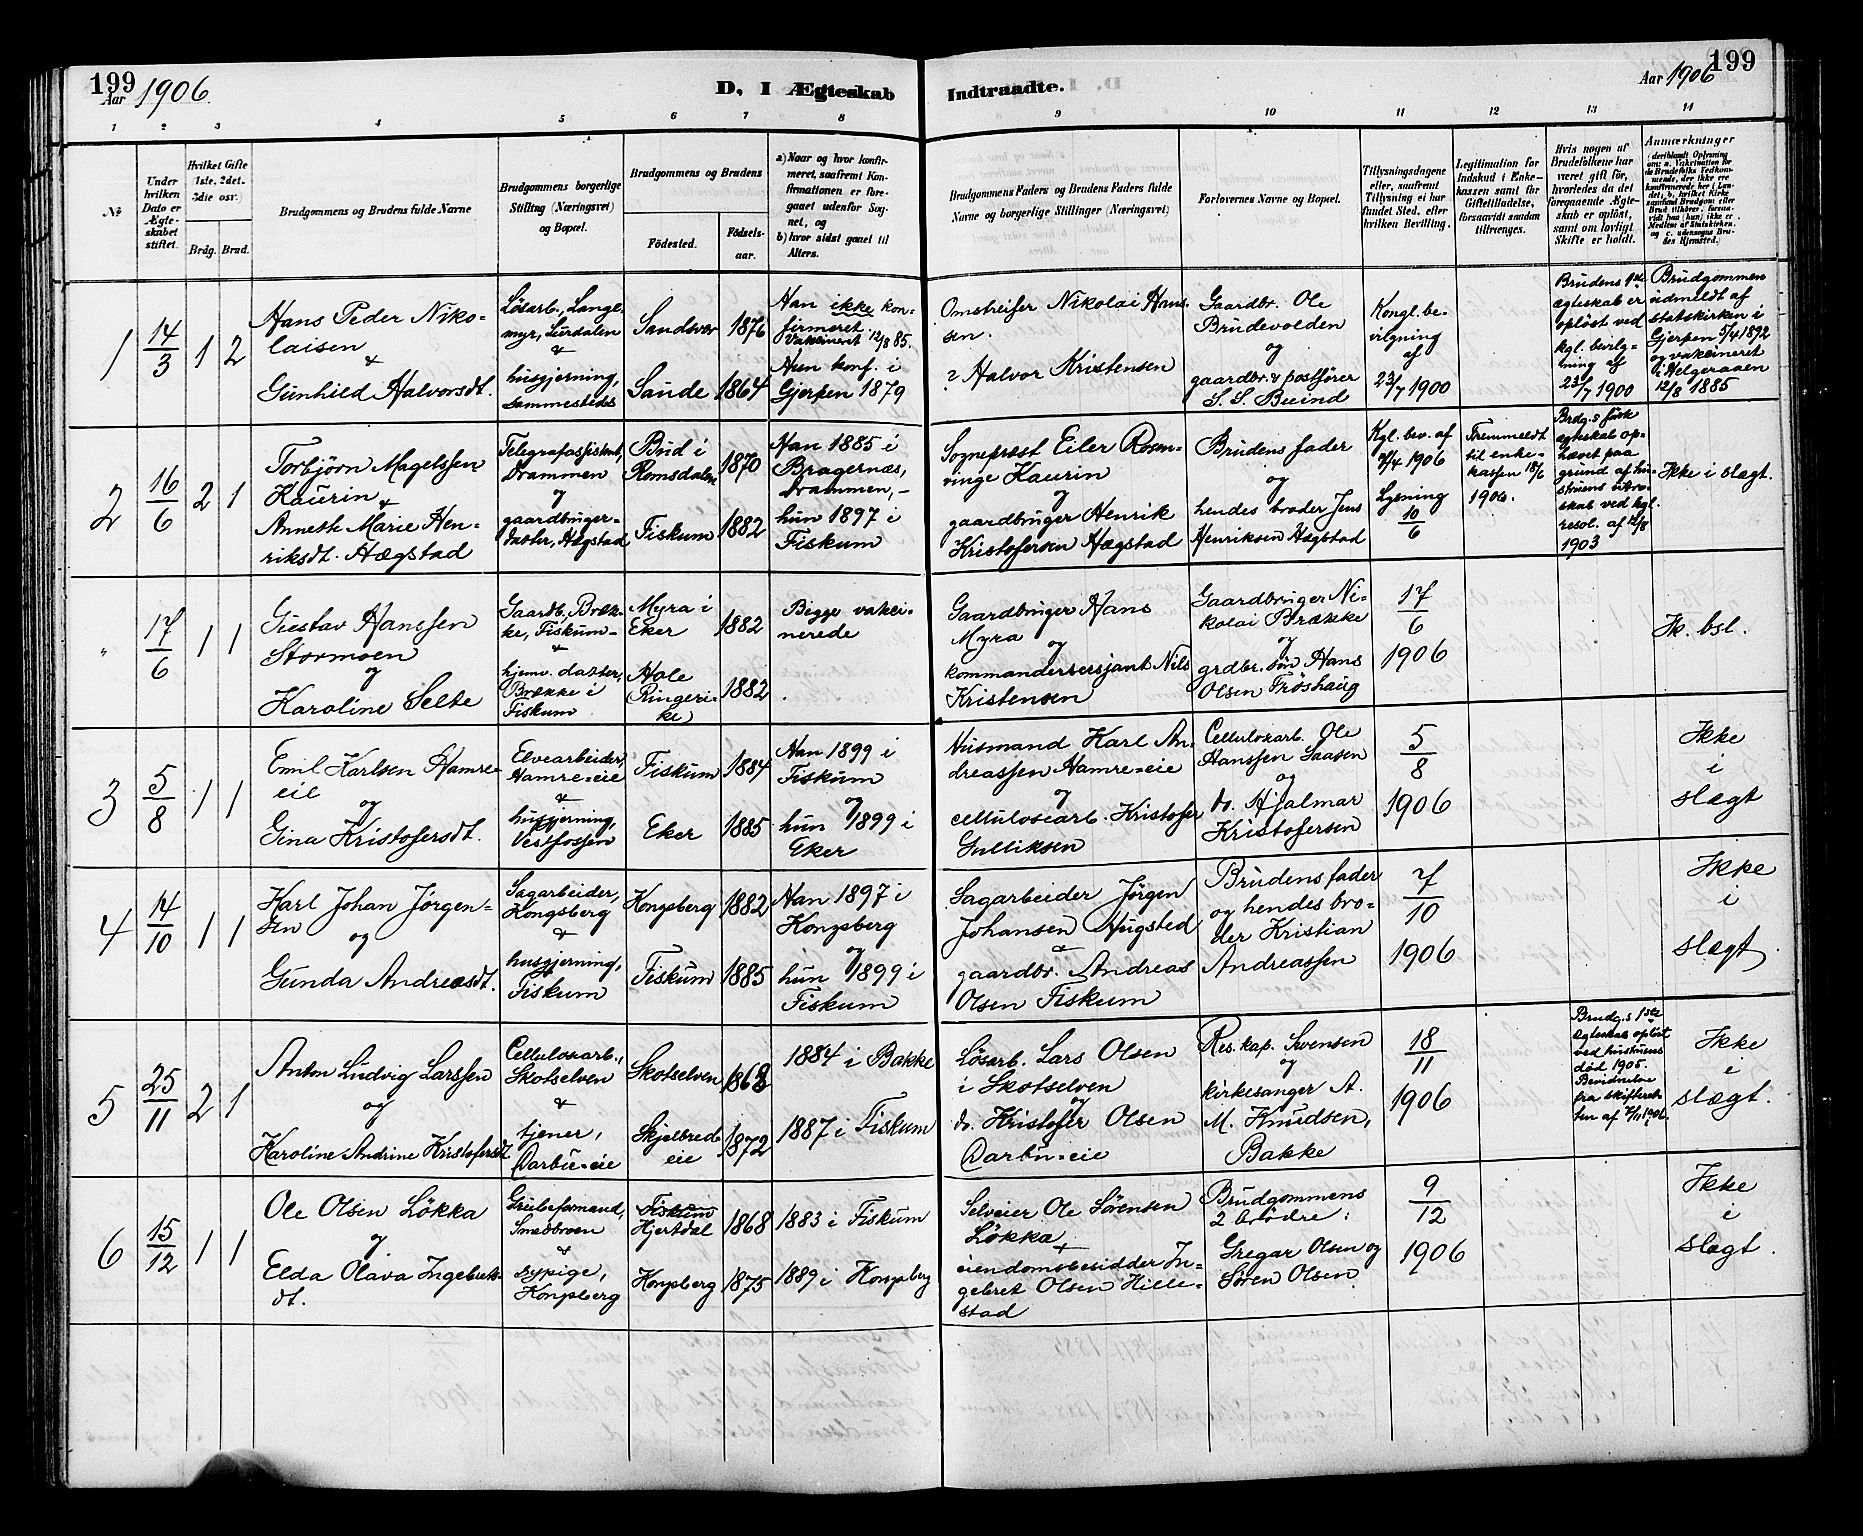 199
Aar 1906.
D, I Ægteskab
Indtraadte.
Aar 1906
199
1 2 3 4 5 6 7 8 9 10 11 12 13 14
№
Under
hvilken
Dato er
Ægte-
skabet
stiftet.
Hvilket Gifte
(1ste. 2det.
3die osv.)
Brdg. Brud.
Brudgommens og Brudens fulde Navne
Brudgommens borgerlige
Stilling (Næringsvei)
og Bopæl.
Brudgommens og Brudens
Födested.
Födsels-
aar.
a) Naar og hvor konfir-
meret, saafremt Kon-
firmationen er fore-
gaaet udenfor Sog-
net, og
b) hvor sidst gaaet til
Alters.
Brudgommens Faders og Brudens Faders fulde
Navne og borgerlige Stillinger (Næringsvei)
Forlovernes Navne og Bopæl.
Tillysningsdagene
eller, saafremt
Tillysning ei har
fundet Sted, efter
hvilken Bevilling.
Legitimation for
Indskud i Enke-
kassen samt for
Giftetilladelse,
forsaavidt saadan
tiltrænges.
Hvis nogen af
Brudefolkene har
været gift för,
hvorledes da det
foregaaende Ægte-
skab er oplöst,
samt om lovligt
Skifte er holdt.
Anmærkninger
(deriblandt Oplysning
om: a. Vakcination for
de Brudefolks Vedkom-
mende, der ikke ere
konfirmerede her i Lan-
det; b. hvilket Kirke
samfund Brudgom eller
Brud tilhörer, forsaa-
vidt han (hun) ikke er
Medlem af Statskirken.
og c. udensogns Bru-
des Hjemsted.)
1
14/3
1 2
Hans Peder Niko-
laisen
&
Gunhild Halvorsdt.
Løsarb., Lange-
myr, Lurdalen
&
husgjerning,
sammesteds
Sandsvær 1876
Saude 1864
Han ikke kon-
firmeret
Vakcineret 12/8 85.
Hun konf. i
Gjerpen 1879
Omstreifer Nikolai Han-
sen.
? Halvor Kristensen
Gaardbr. Ole
Brudevolden
og
gaardbr. & postfører
S. S. Buind
Kongl. be-
vilgning
af
23/7 1900
Brudens 1ste
ægteskab er
opløst ved
kgl. bevilg-
ning af
23/7 1900
Brudgommen
udmeldt af
statskirken i
Gjerpen 5/4 1892
og vakcineret
i Helgeraaen
12/8 1885
2
16/6
2 1
Torbjørn Magelssen
Kaurin
&
Anneth Marie Hen-
riksdt. Hægstad
Telegrafassistent,
Drammen
og
gaardbruger-
datter, Hægstad
Bud i
Romsdalen 1870
Fiskum 1882
Han 1885 i
Bragernæs,
Drammen, -
hun 1897 i
Fiskum
Sogneprest Eiler Rosen-
vinge Kaurin
og
gaardbruger Henrik
Kristofersen Hægstad
Brudens fader
og
hendes broder Jens
Henriksen Hægstad
Kgl. bev. af
4/4 1906
Lysning
10/6
Fremmeldt
til enke-
kassen 18/6
1906.
Brdg.s første
ægteskab op-
hævet paa
grund af hu-
struens utro-
skab ved kgl.
resol. af 12/8
1903
Ikke i slægt.
"
17/6
1 1
Gustav Hanssen
Stormoen
og
Karoline Selte
Gaardb., Bræk-
ke, Fiskum -
hjemv. datter,
Brække i
Fiskum
Myra i
Eker 1882
Hole
(Ringeri-
ke) 1882
Begge vakci-
nerede
Gaardbruger Hans
Myra
og
kommandersersjant Nils
Kristensen
Gaardbruger Ni-
kolai Brække
og
grdbr. søn Hans
Olsen Frøshaug
17/6
1906
Ik. bsl.
3
5/8
1 1
Emil Karlsen Hamre-
eie
og
Gina Kristofersdt.
Elvearbeider,
Hamre-eie
&
husgjerning,
Vestfossen
Fiskum 1884
Eker 1885
Han 1899 i
Fiskum
og
hun 1899 i
Eker
Husmand Karl An-
dreassen Hamre-eie
og
cellulosearb. Kristofer
Gulliksen
Cellulosearb. Ole
Hanssen Saasen
og
do. Hjalmar
Kristofersen
5/8
1906
Ikke
i
slægt
4
14/10
1 1
Karl Johan Jørgen-
sen
og
Gunda Andreasdt.
Sagarbeider,
Kongsberg
&
husgjerning,
Fiskum
Kongsberg 1882
Fiskum 1885
Han 1897 i
Kongsberg
og
hun 1899 i
Fiskum
Sagarbeider Jørgen
Johansen Augsted
&
gaardbr. Andreas
Olsen Fiskum
Brudens fader
og hendes bro-
der Kristian
Andreassen
7/10
1906
Ikke
i
slægt
5
25/11
2 1
Anton Ludvig Larssen
og
Karoline Andrine Kristofersdt.
Cellulosearb.,
Skotselven
&
tjener,
Darbu-eie
Skotselven 1868
Skjelbred-
eie 1872
1884 i Bakke
1887 i Fiskum
Løsarb. Lars Olsen
i Skotselven
og
do. Kristofer Olsen
Darbu-eie
Res. kap. Svensen
og
kirkesanger A.
M. Knudsen,
Bakke
18/11
1906
Brudg.s 1ste
ægteskab opløst
ved hustruens
død 1905.
Bevidnelse
fra skifteret-
ten af 7/11 1906.
Ikke
i
slægt.
6
15/12
1 1
Ole Olsen Løkka
og
Elda Olava Ingebrets-
dt.
Grubeformand,
Smedbroen
&
sypige,
Kongsberg
Fiskum
Hjertdal 1868
Kongsberg 1875
1883 i Fiskum
1889 i Kongsberg
Selveier Ole Sørensen
Løkka
&
eiendomsbesidder In-
gebret Olsen Hille-
stad
Brudgommens
2 brødre:
Gregar Olsen og
Søren Olsen
9/12
1906
Ikke
i
slægt.